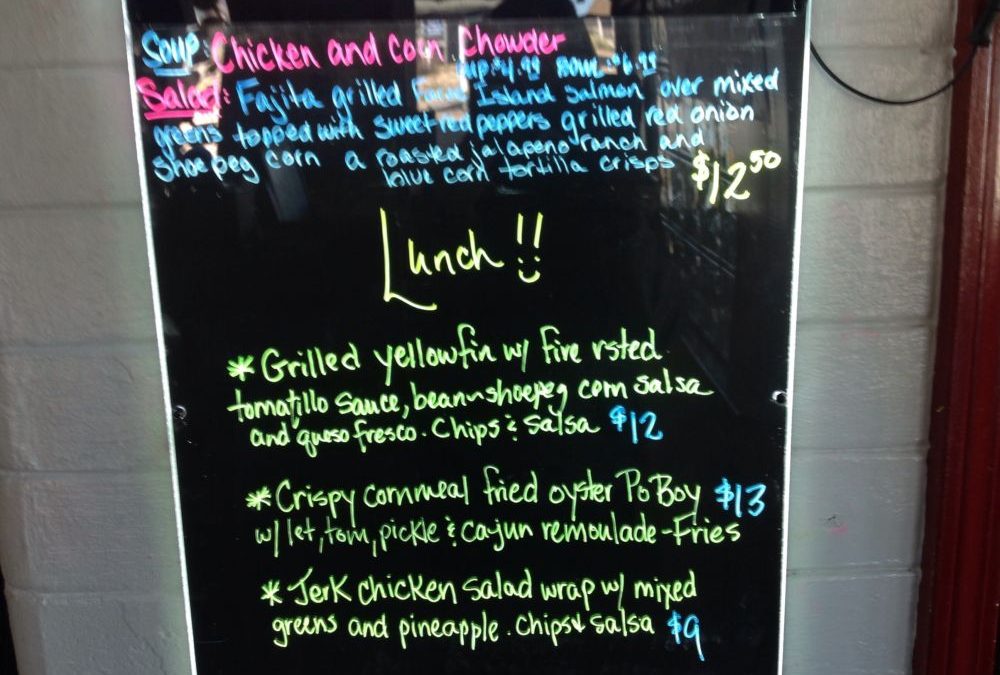 Soup: Chicken and corn Chowder
Cup $4.99 Bowl $6.99
Salad: Fajita grilled Faroe Island Salmon over mixed
greens topped with sweet red peppers grilled red onion
shoepeg corn a roasted jalapeno ranch and
blue corn tortilla crisps $12.50
Lunch!!
*Grilled yellowfin w/ fire rsted
tomatillo sauce, bean~shoepeg corn salsa
and queso fresco. Chips & Salsa $12
*Crispy cornmeal fried oyster Po Boy $13
w/ let, tom, pickle & Cajun remoulade-Fries
*Jerk chicken Salad wrap w/ mixed
greens and pineapple. chips & salsa $9